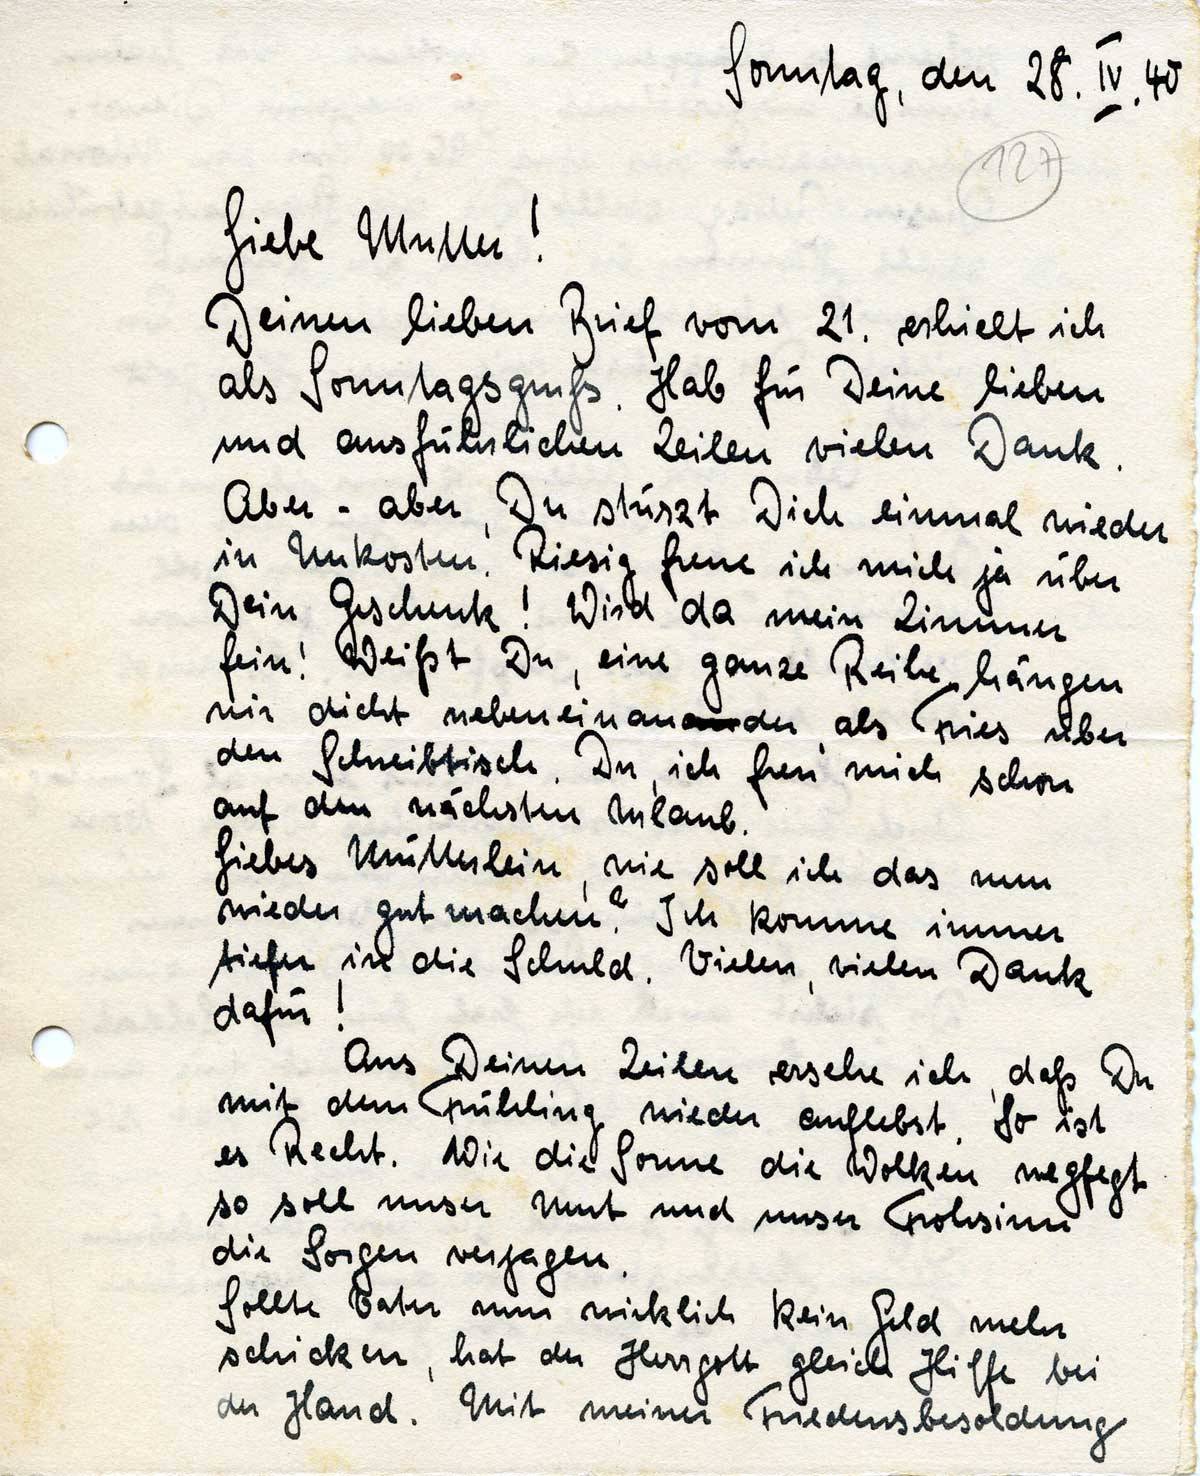 Sonntag, den 28. IV. 40
127
Liebe Mutter!
Deinen lieben Brief vom 21. erhielt ich
als Sonntagsgruß. Hab für Deine lieben
und ausführlichen Zeilen vielen Dank.
Aber - aber, Du stürzt Dich einmal wieder
in Unkosten. Riesig freue ich mich ja über
Dein Geschenk! Wird da mein Zimmer
fein! Weißt Du, eine ganze Reihe hängen
wir dicht nebeneinander, als Fries über
den Schreibtisch. Du, ich freu' mich schon
auf den nächsten Urlaub.
Liebes Mütterlein, wie soll ich das nun
wieder gut machen? Ich komme immer
tiefer in die Schuld. Vielen, vielen Dank
dafür!
Aus Deinen Zeilen ersehe ich, daß Du
mit dem Frühling wieder auflebst. So ist
es Recht. Wie die Sonne die Wolken wegfegt
so soll unser Mut und unser Frohsinn
die Sorgen verjagen.
Sollte Vater nun wirklich kein Geld mehr
schicken, hat der Herrgott gleich Hilfe bei
der Hand. Mit meiner Friedensbesoldung